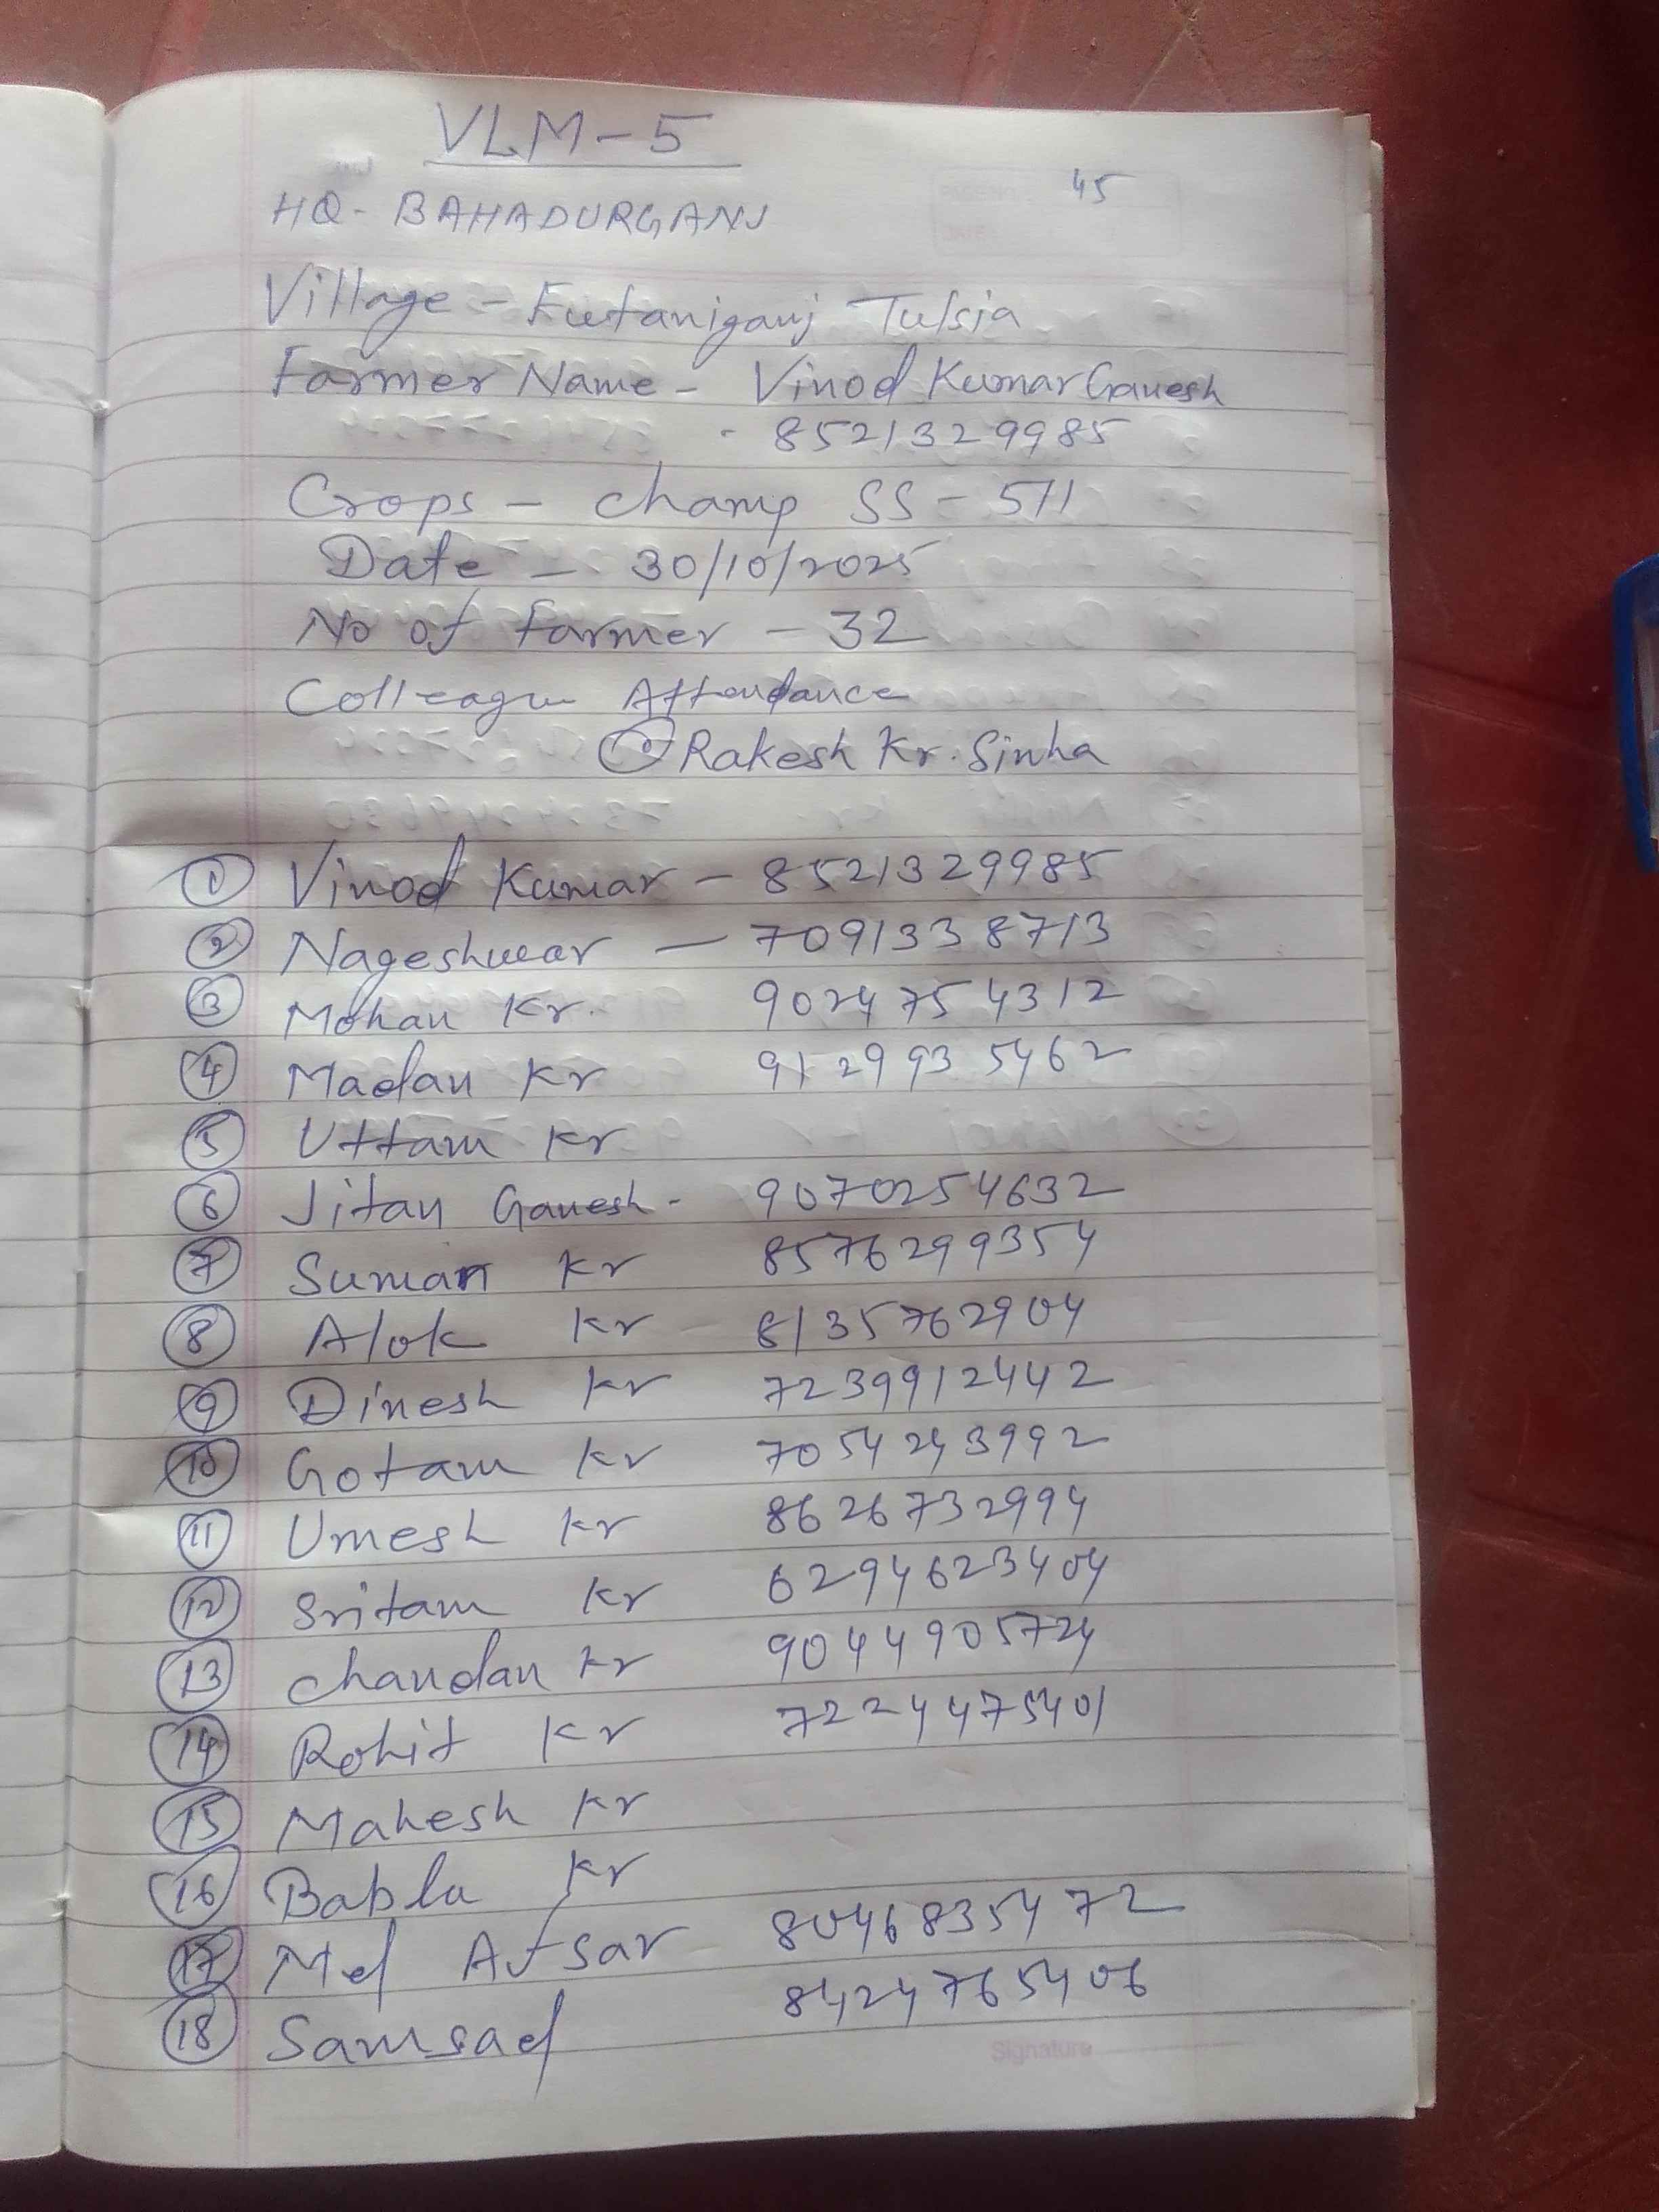 VLM-5
45
HQ- BAHADURGANJ
Village - Futaniganj Tulsia
Farmer Name - Vinod Kumar Ganesh
- 8521329985
Crops - Champ SS-511
Date - 30/10/2025
No of Farmer - 32
Colleague Attendance
① Rakesh Kr. Sinha
① Vinod Kumar - 8521329985
② Nageshwar - 7091338713
③ Mohan Kr. 9024754312
④ Madan Kr 9129935462
⑤ Uttam Kr
⑥ Jitan Ganesh - 9070254632
⑦ Suman Kr 8576299354
⑧ Alok Kr 8135762904
⑨ Dinesh Kr 7239912442
⑩ Gotam Kr 7054243992
⑪ Umesh Kr 8626732994
⑫ Sritam Kr 6294623404
⑬ Chandan Kr 9044905724
⑭ Rohit Kr 7224475401
⑮ Mahesh Kr
⑯ Bablu Kr
⑰ Md Afsar 8046835472
⑱ Samsad 8424765406
Signature